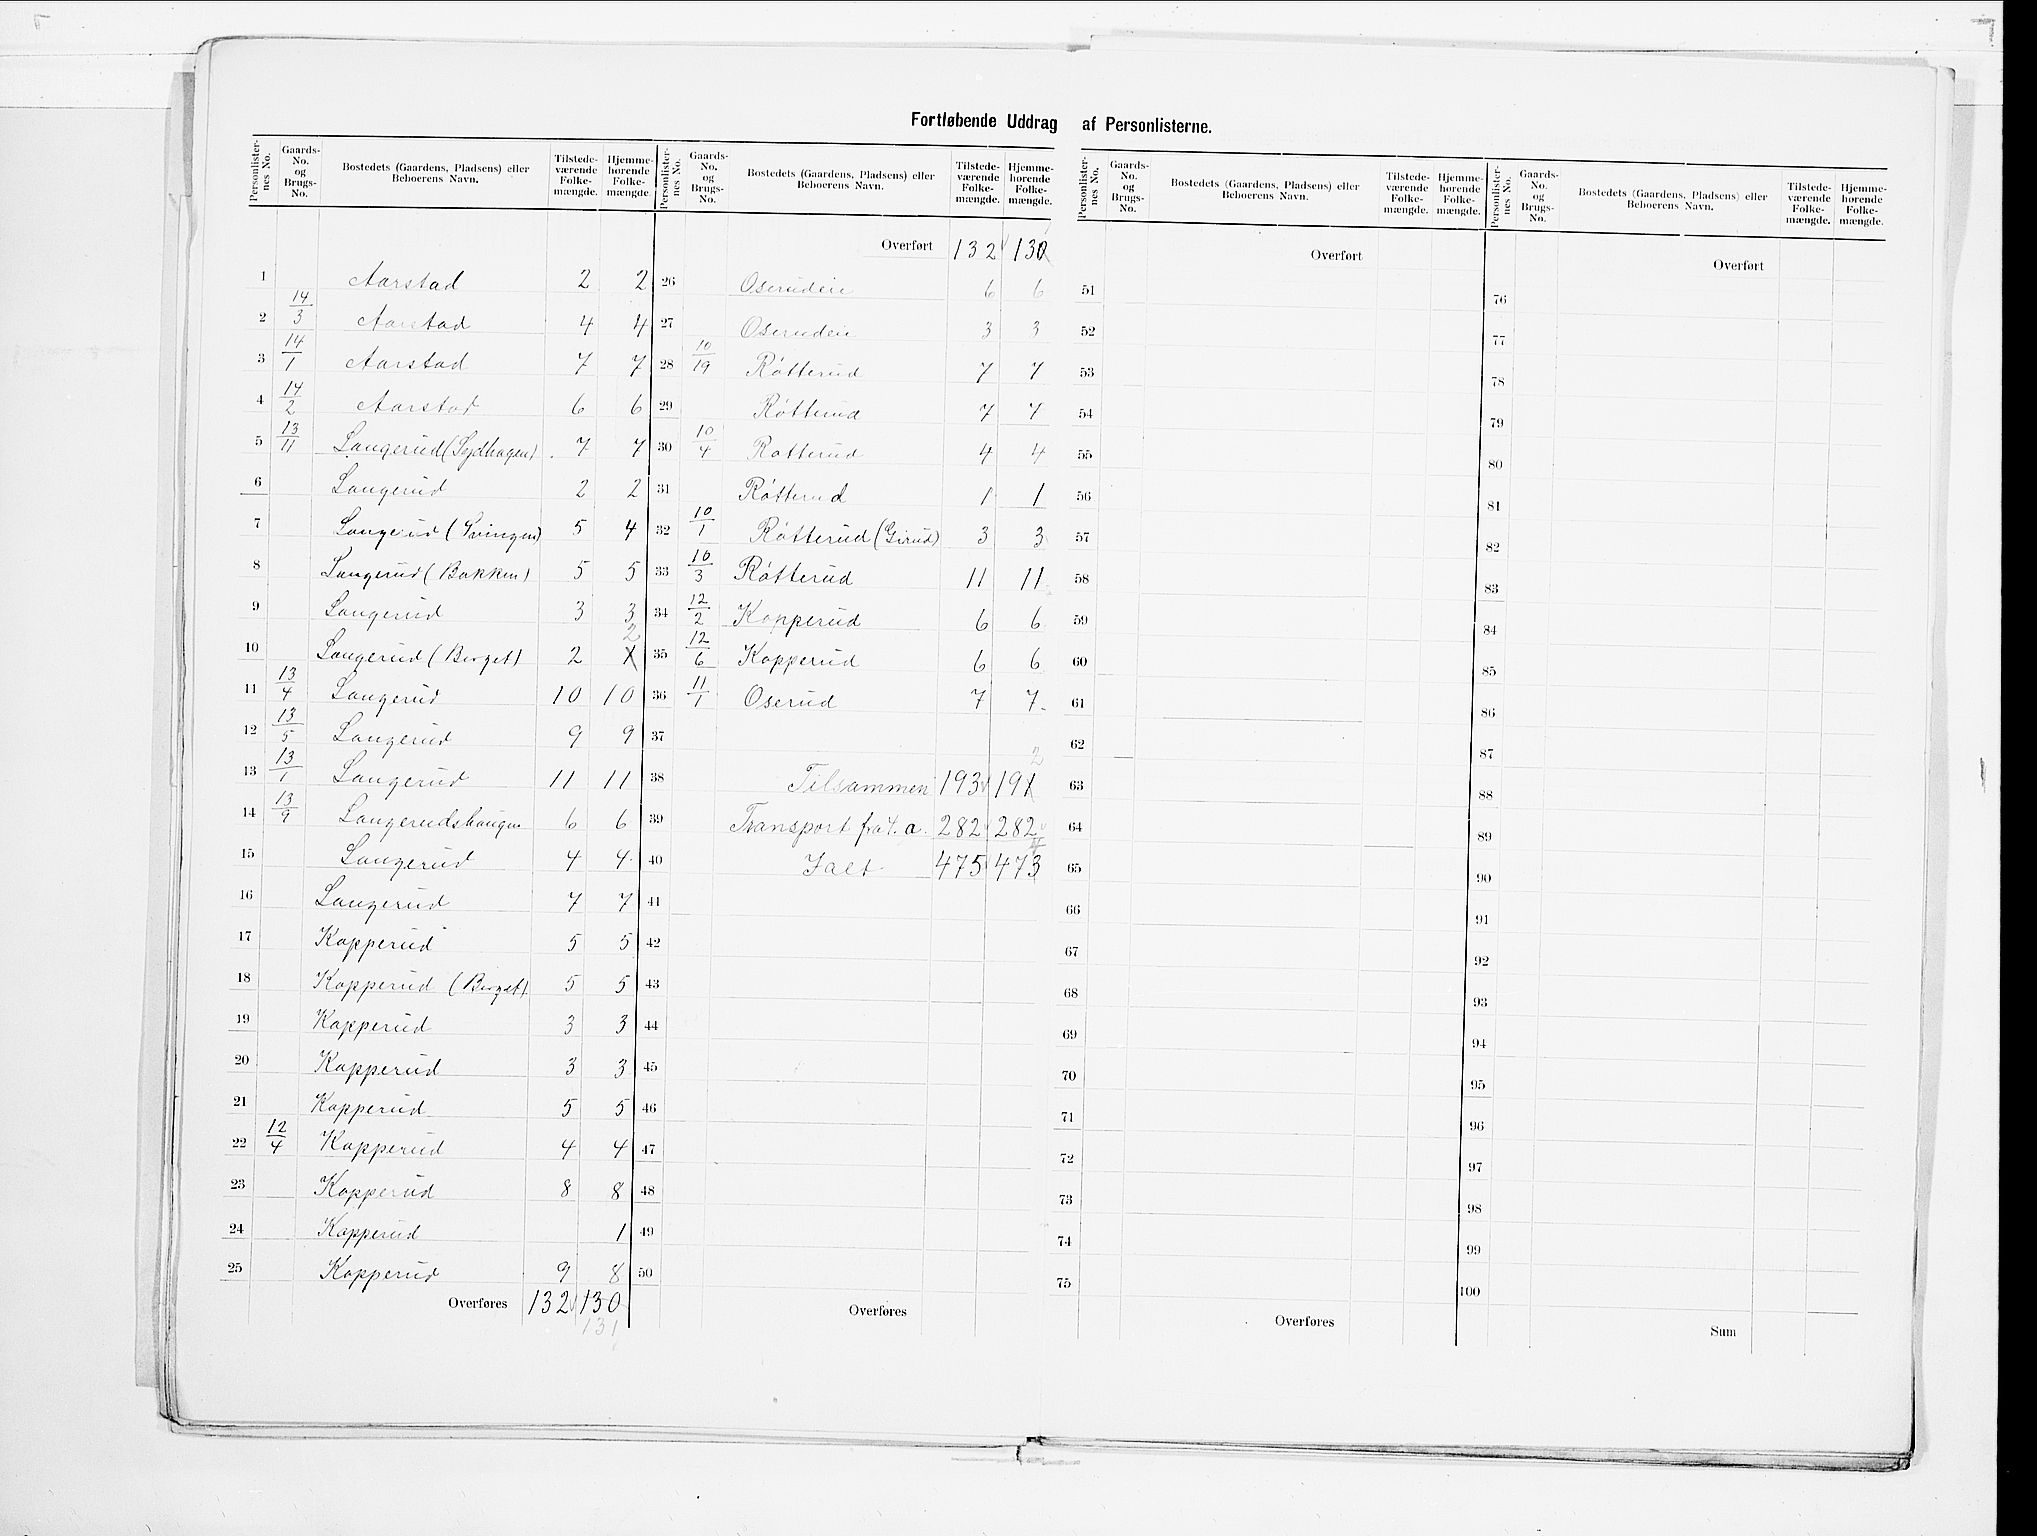 Fortløbende Uddrag af Personlisterne.
Personlister-nes No. | Gaards-No. og Brugs-No. | Bostedets (Gaardens, Pladsens) eller Beboerens Navn. | Tilstede-værende Folke-mængde. | Hjemme-hørende Folke-mængde.
1 Aarstad 2 2
2 14/3 Aarstad 4 4
3 14/1 Aarstad 7 7
4 14/2 Aarstad 6 6
5 13/11 Langerud (Sydhagen) 7 7
6 Langerud 2 2
7 Langerud (Svingen) 5 4
8 Langerud (Bakken) 5 5
9 Langerud 3 3
10 Langerud (Berget) 2 1 2
11 13/4 Langerud 10 10
12 13/5 Langerud 9 9
13 13/1 Langerud 11 11
14 13/9 Langerudshaugen 6 6
15 Langerud 4 4
16 Langerud 7 7
17 Kopperud 5 5
18 Kopperud (Berget) 5 5
19 Kopperud 3 3
20 Kopperud 3 3
21 Kopperud 5 5
22 12/4 Kopperud 4 4
23 Kopperud 8 8
24 Kopperud 1
25 Kopperud 9 8
Overføres 132 130
131
Personlister-nes No. | Gaards-No. og Brugs-No. | Bostedets (Gaardens, Pladsens) eller Beboerens Navn. | Tilstede-værende Folke-mængde. | Hjemme-hørende Folke-mængde.
Overført 132 130
26 Oserudeie 6 6
27 Oserudeie 3 3
28 10/19 Røtterud 7 7
29 Røtterud 7 7
30 10/4 Røtterud 4 4
31 Røtterud 1 1
32 10/1 Røtterud (Girud) 3 3
33 10/3 Røtterud 11 11
34 12/2 Kopperud 6 6
35 12/6 Kopperud 6 6
36 11/1 Oserud 7 7
37
38 Tilsammen 193 191 2
39 Transport fra l. a. 282 282
40 Ialt 475 473 4
41
42
43
44
45
46
47
48
49
50
Overføres
Personlister-nes No. | Gaards-No. og Brugs-No. | Bostedets (Gaardens, Pladsens) eller Beboerens Navn. | Tilstede-værende Folke-mængde. | Hjemme-hørende Folke-mængde.
Overført
51
52
53
54
55
56
57
58
59
60
61
62
63
64
65
66
67
68
69
70
71
72
73
74
75
Overføres
Personlister-nes No. | Gaards-No. og Brugs-No. | Bostedets (Gaardens, Pladsens) eller Beboerens Navn. | Tilstede-værende Folke-mængde. | Hjemme-hørende Folke-mængde.
Overført
76
77
78
79
80
81
82
83
84
85
86
87
88
89
90
91
92
93
94
95
96
97
98
99
100
Sum